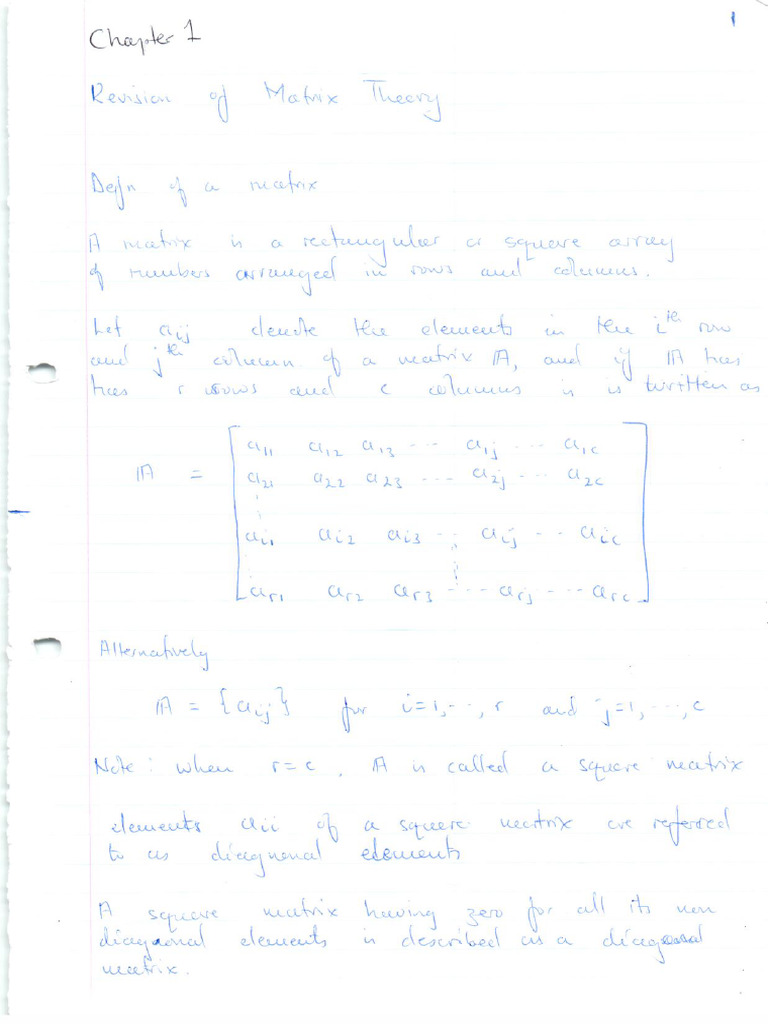 1
Chapter 1
Revision of Matrix Theory
Defn of a matrix
A matrix is a rectangular or square array
of numbers arranged in rows and columns.
Let aij denote the elements in the i^th row
and j^th column of a matrix A, and if A has
has r rows and c columns it is written as
A = [ a11 a12 a13 ... a1j ... a1c
a21 a22 a23 ... a2j ... a2c
⋮
ai1 ai2 ai3 ... aij ... aic
⋮
ar1 ar2 ar3 ... arj ... arc ]
Alternatively
A = {aij} for i=1,...,r and j=1,...,c
Note: when r=c, A is called a square matrix
elements aii of a square matrix are referred
to as diagnonal elements
A square matrix having zero for all its non
diagonal elements is described as a diagonal
matrix.